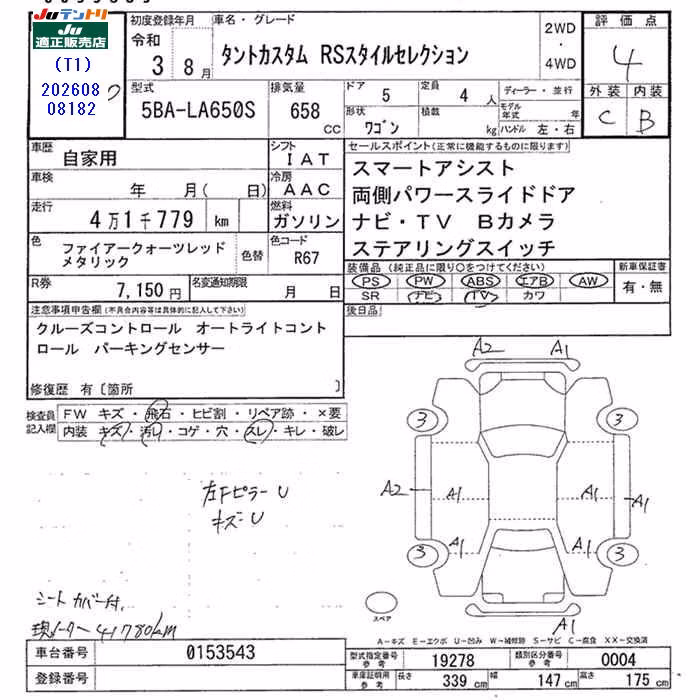 Juテントリ
Ju適正販売店
(T1)
202608
08182
初度登録年月
令和
3 8月
車名・グレード
タントカスタム RSスタイルセレクション
2WD
・
4WD
評価点
4
外装 内装
C B
型式
5BA-LA650S
排気量
658
CC
ドア
5
定員
4 人
形状
ワゴン
積載
kg
ディーラー・並行
モデル
年式 年
ハンドル 左・右
車歴
自家用
シフト
IAT
車検
年 月( 日)
冷房
AAC
走行
4万1千779 km
燃料
ガソリン
色
ファイアークォーツレッド
メタリック
色替
色コード
R67
R券
7,150円
名変通知期限
月 日
セールスポイント(正常に機能するものに限ります)
スマートアシスト
両側パワースライドドア
ナビ・TV Bカメラ
ステアリングスイッチ
装備品(純正品に限り○をつけてください)
PS PW ABS エアB AW
SR ナビ TV カワ
新車保証書
有・無
後日品
注意事項申告欄(不具合内容等は具体的に記入して下さい)
クルーズコントロール オートライトコント
ロール パーキングセンサー
修復歴 有〔箇所 〕
検査員
記入欄
FW キズ・飛石・ヒビ割・リペア跡・×要
内装 キズ・汚レ・コゲ・穴・スレ・キレ・破レ
左Fピラー U
キズ・U
シートカバー付.
現メーター 41780km
A2 A1
3 3
A2 A1 A1 A1
A1 A1
3 3
A1
スペア
A-キズ E-エクボ U-凹み W-補修跡 S-サビ C-腐食 XX-交換済
車台番号
0153543
登録番号
型式指定番号
参考
19278
類別区分番号
参考
0004
車庫証明用
参考
長さ
339 cm
幅
147 cm
高さ
175 cm